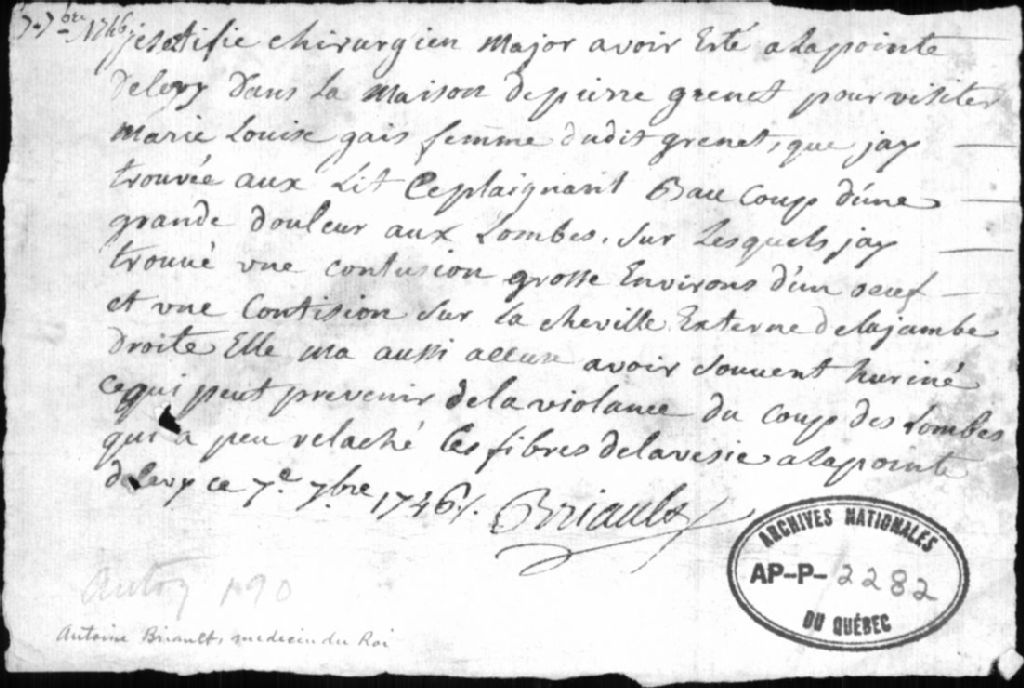 7-7bre 1746
je certifie chirurgien major avoir Esté a Lapointe
delevy dans La maison depierre grenet pour visiter
marie Louise gais femme dudit grenet, que jay
trouvée aux Lit Ceplaignant Baucoup d'une
grande douleur aux Lombes, sur Lesquels jay
trouvé une contusion grosse Environs d'un oeuf
et une Contision sur la cheville Externe delajambe
droite Elle ma aussi avoir souvent huriné
cequi peut prevenir delaviolance du coup des Lombes
qui a peu relaché Les fibres delavesie alapointe
deLevy ce 7e 7bre 1746/. Briault
ARCHIVES NATIONALES
AP-P-2282
DU QUÉBEC
Antoine Briault, medecin du Roi